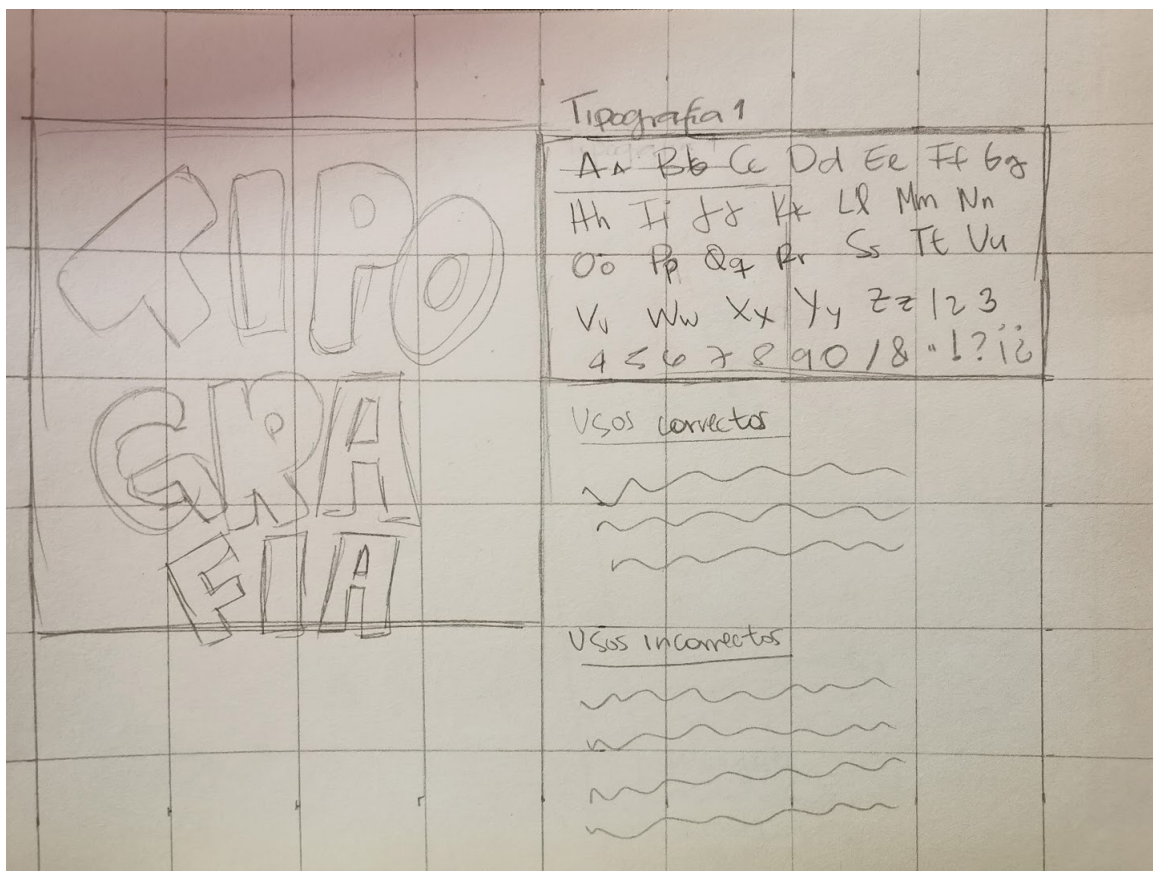 TIPO
GRA
FIA
Tipografía 1
Aa Bb Cc Dd Ee Ff Gg
Hh Ii Jj Kk Ll Mm Nn
Oo Pp Qq Rr Ss Tt Uu
Vv Ww Xx Yy Zz 1 2 3
4 5 6 7 8 9 0 / & " ! ? ¡ ¿
Usos correctos
Usos incorrectos